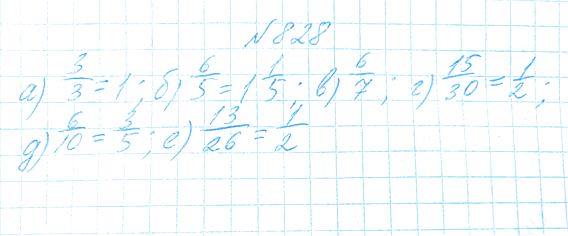 №828
а) 3/3 = 1; б) 6/5 = 1 1/5; в) 6/7; г) 15/30 = 1/2;
д) 6/10 = 3/5; е) 13/26 = 1/2